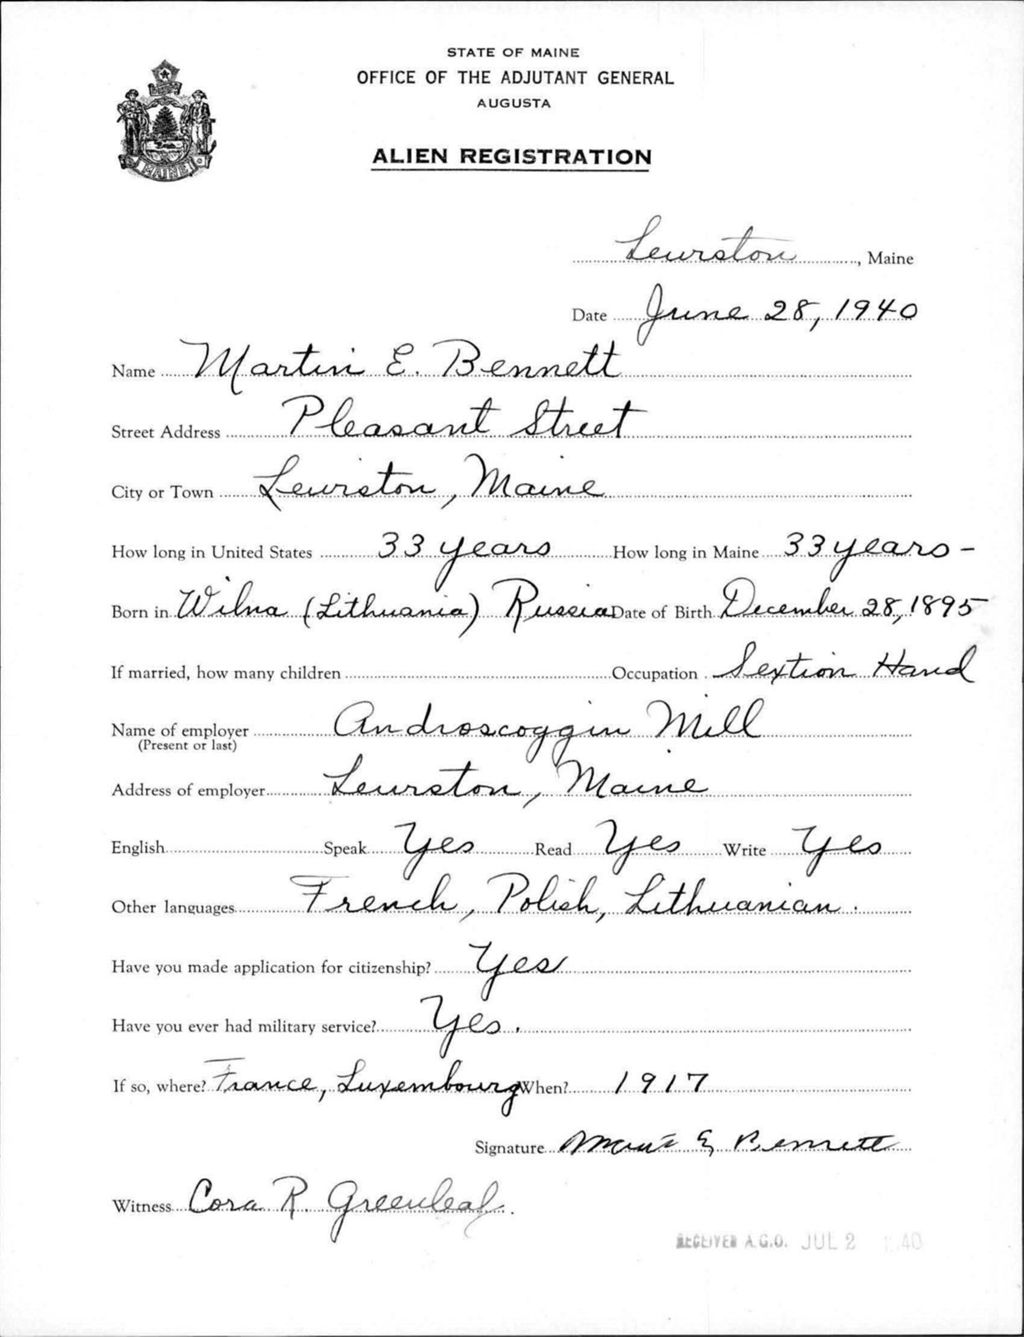 STATE OF MAINE
OFFICE OF THE ADJUTANT GENERAL
AUGUSTA
ALIEN REGISTRATION
MAINE
Lewiston, Maine
Date June 28, 1940
Name Martin E. Bennett
Street Address Pleasant Street
City or Town Lewiston, Maine
How long in United States 33 years How long in Maine 33 years -
Born in Wilna (Lithuania) Russia Date of Birth December 28, 1895
If married, how many children Occupation Sextion Hand
Name of employer Androscoggin Mill
(Present or last)
Address of employer Lewiston, Maine
English Speak Yes Read Yes Write Yes
Other languages French, Polish, Lithuanian.
Have you made application for citizenship? Yes
Have you ever had military service? Yes.
If so, where? France, Luxembourg When? 1917
Signature Martin E Bennett
Witness Cora R. Greenleaf.
RECEIVED A.G.O. JUL 2 40